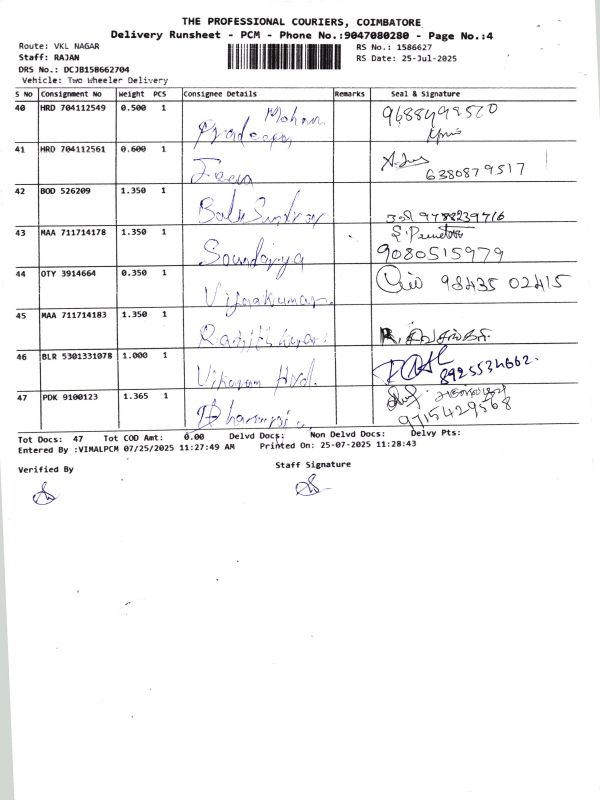 THE PROFESSIONAL COURIERS, COIMBATORE
Delivery Runsheet - PCM - Phone No.:9047080280 - Page No.:4
Route: VKL NAGAR
RS No.: 1586627
Staff: RAJAN
RS Date: 25-Jul-2025
DRS No.: DCJB158662704
Vehicle: Two Wheeler Delivery
S No Consignment No Weight PCS Consignee Details Remarks Seal & Signature
40 HRD 704112549 0.500 1 Mohan 9688499520
41 HRD 704112561 0.600 1 6380879517
42 BOD 526209 1.350 1 9788239716
43 MAA 711714178 1.350 1 Soundarya 9080515979
44 OTY 3914664 0.350 1 Vijaakumar 98435 02415
45 MAA 711714183 1.350 1
46 BLR 5301331078 1.000 1 8925534662.
47 PDK 9100123 1.365 1 9715429568
Tot Docs: 47 Tot COD Amt: 0.00 Delvd Docs: Non Delvd Docs: Delvy Pts:
Entered By :VIMALPCM 07/25/2025 11:27:49 AM Printed On: 25-07-2025 11:28:43
Verified By
Staff Signature